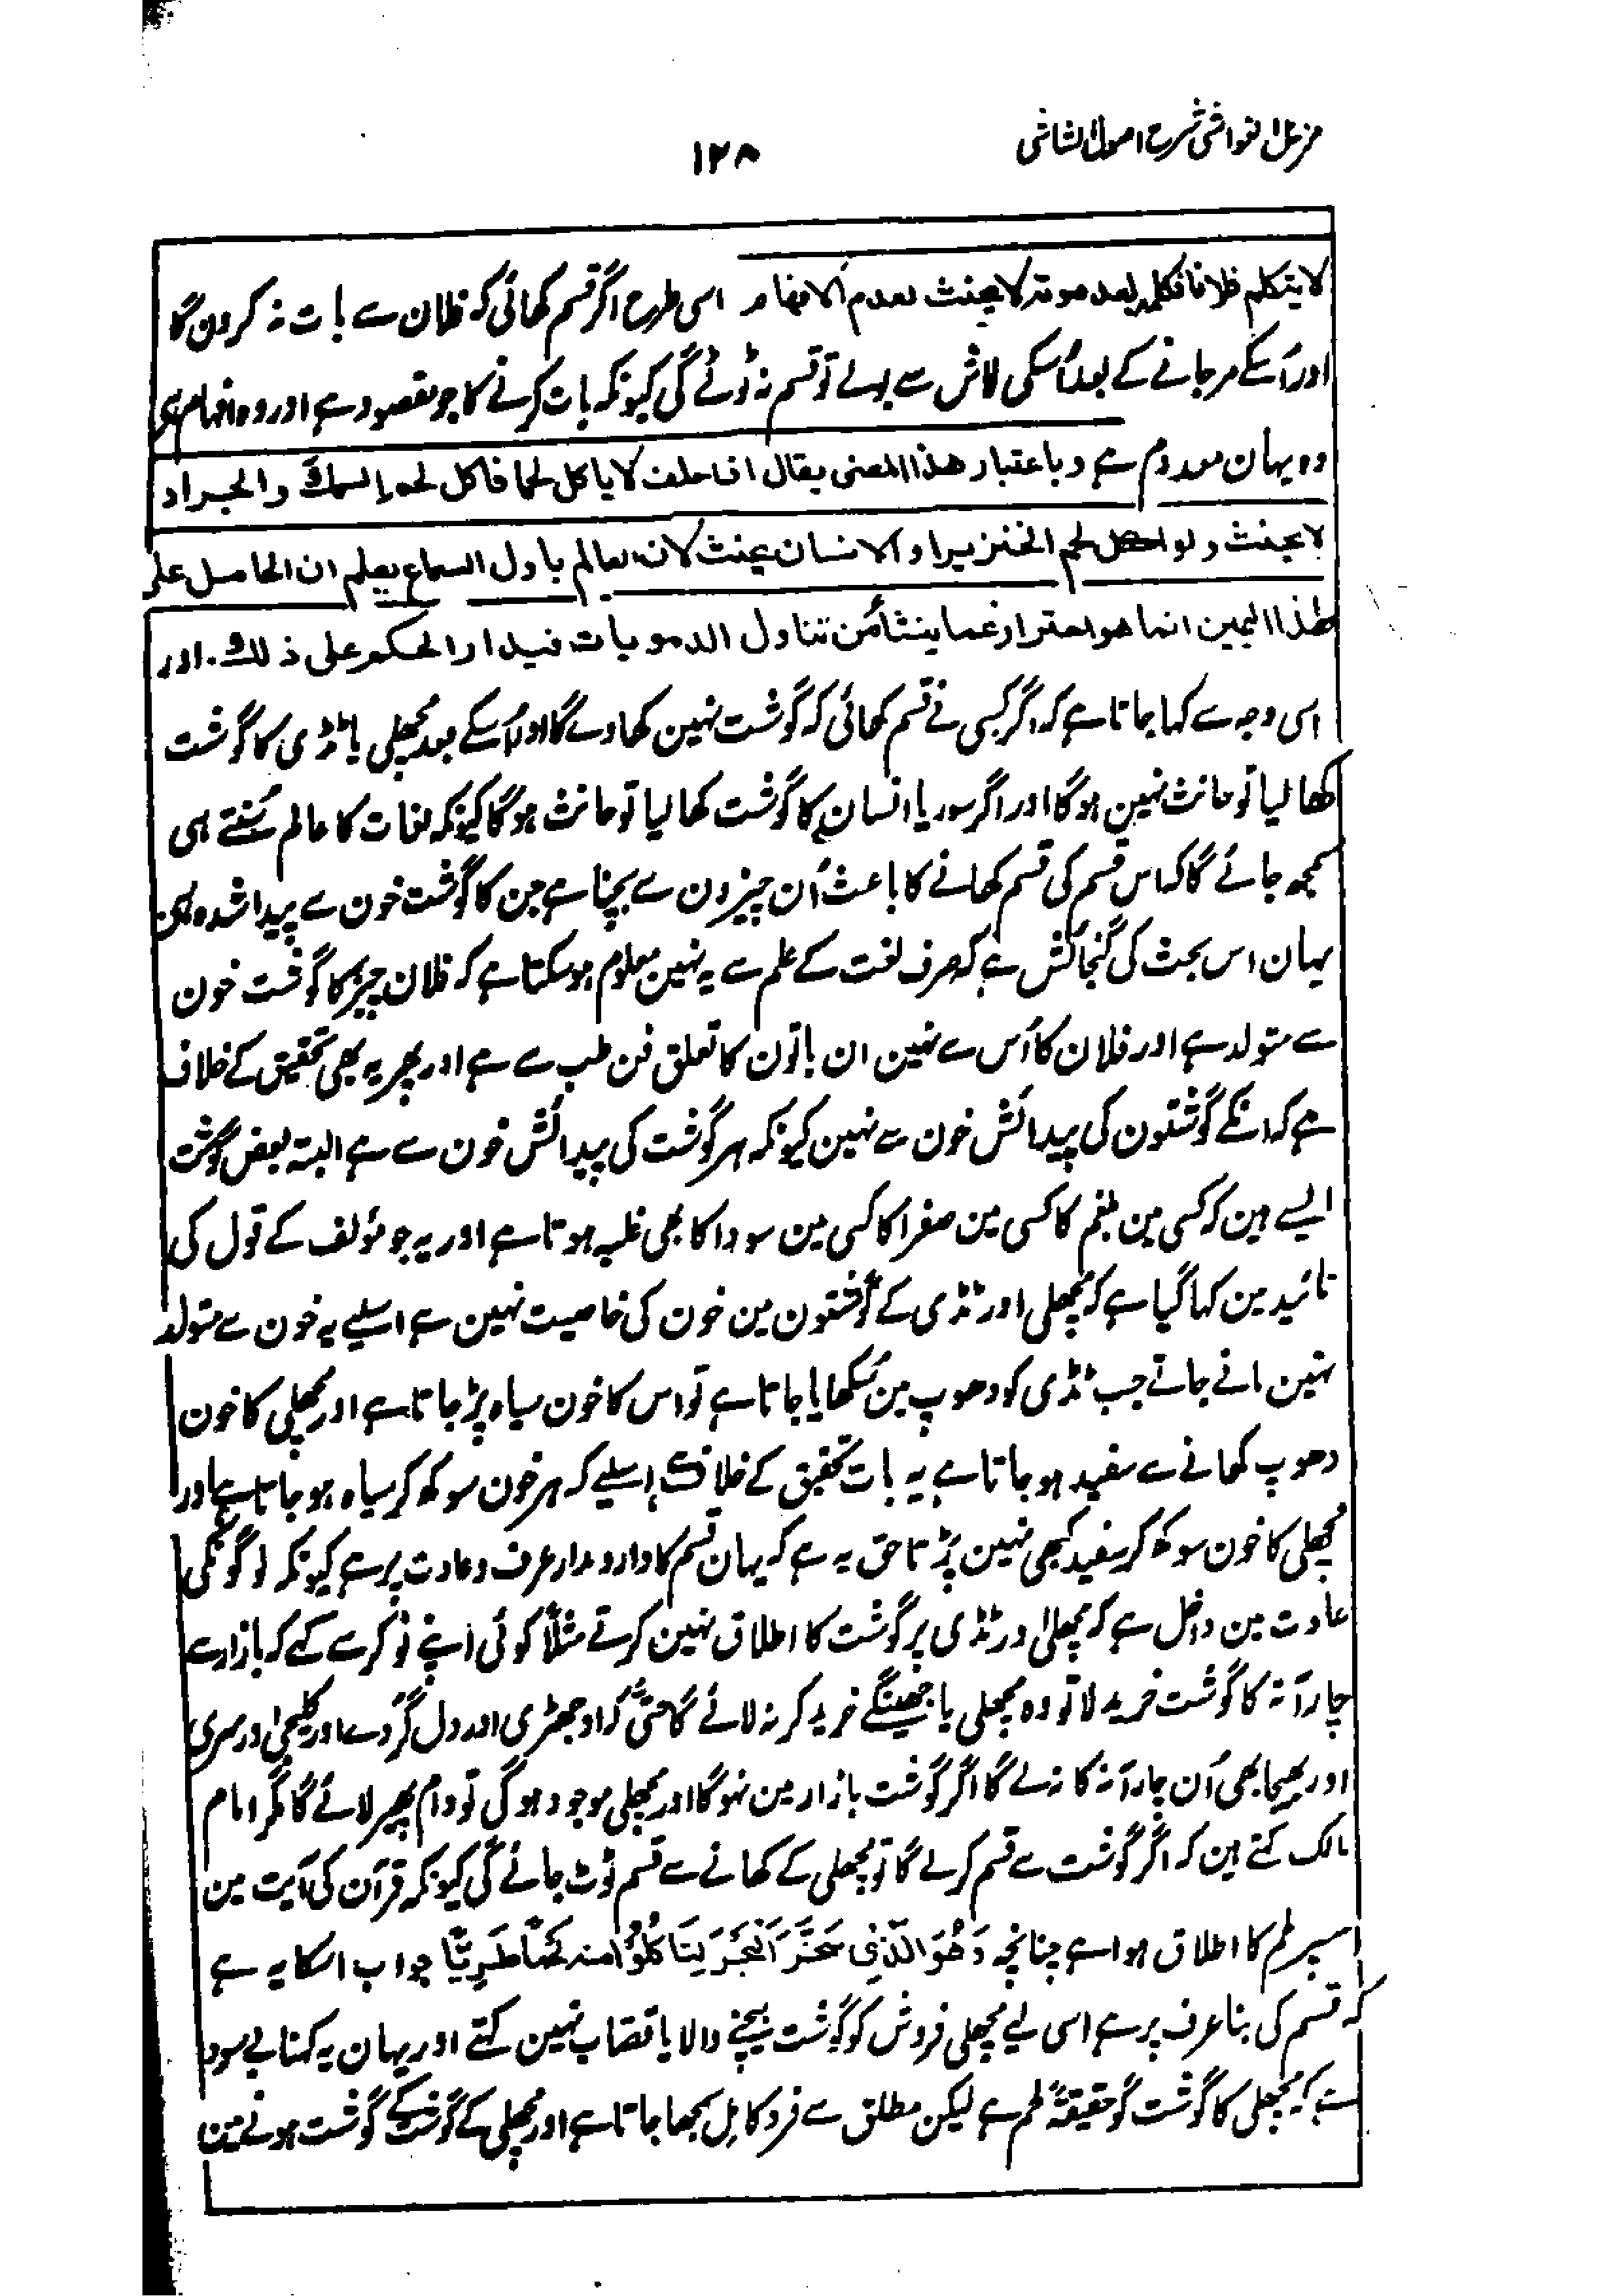 مزیل الغواشی شرح اصول الشاشی
۱۲۸
لا یتکلم فلانا فکلمہ بعد موتہ لا یحنث لعدم الافہام اسی طرح اگر قسم کھائی کہ فلان سے بات نہ کرون گا
اور اُسکے مرجانے کے بعد اُسکی لاش سے بولے تو قسم نہ ٹوٹے گی کیونکہ بات کرنے کا جو مقصود ہے اور وہ افہام ہی
وہ یہان معدوم ہے و باعتبار ھذا المعنی یقال اذا حلف لا یاکل لحما فاکل لحم السمک والجراد
لا یحنث ولو اکل لحم الخنزیر او الانسان یحنث لان العالم باول السماع یعلم ان الحامل علی
ھذا الیمین انما ھو احتراز عما ینشأ من تناول الدمویات فیدار الحکم علی ذلک. اور
اسی وجہ سے کہا جاتا ہے کہ اگر کسی نے قسم کھائی کہ گوشت نہین کھاوے گا اور اُسکے بعد مچھلی یا ٹڈی کا گوشت
کھا لیا تو حانث نہین ہوگا اور اگر سور یا انسان کا گوشت کھا لیا تو حانث ہوگا کیونکہ لغات کا عالم سُنتے ہی
سمجھ جائے گا کہ اس قسم کی قسم کھانے کا باعث اُن چیزون سے بچنا ہے جن کا گوشت خون سے پیدا شدہ ہی
یہان اس بحث کی گنجائش ہے کہ صرف لغت کے علم سے یہ نہین معلوم ہوسکتا ہے کہ فلان چیز کا گوشت خون
سے متولد ہے اور فلان کا اُس سے نہین ان باتون کا تعلق فن طب سے ہے اور پھر یہ بھی تحقیق کے خلاف
ہے کہ انکے گوشتون کی پیدائش خون سے نہین کیونکہ ہر گوشت کی پیدائش خون سے ہے البتہ بعض گوشت
ایسے ہین کہ کسی مین بلغم کا کسی مین صفرا کا کسی مین سودا کا بھی غلبہ ہوتا ہے اور یہ جو مؤلف کے قول کی
تائید مین کہا گیا ہے کہ مچھلی اور ٹڈی کے گوشتون مین خون کی خاصیت نہین ہے اسلیے یہ خون سے متولد
نہین مانے جاتے جب ٹڈی کو دھوپ مین سُکھایا جاتا ہے تو اس کا خون سیاہ پڑجاتا ہے اور مچھلی کا خون
دھوپ کھانے سے سفید ہو جاتا ہے یہ بات تحقیق کے خلاف ہے اسلیے کہ ہر خون سوکھ کر سیاہ ہو جاتا ہے اور
مچھلی کا خون سوکھ کر سفید کبھی نہین پڑتا حق یہ ہے کہ یہان قسم کا دار و مدار عرف و عادت پر ہے کیونکہ لوگونکی
عادت مین داخل ہے کہ مچھلی اور ٹڈی پر گوشت کا اطلاق نہین کرتے مثلاً کوئی اپنے نوکر سے کہے کہ بازار سے
چار آنہ کا گوشت خرید لا تو وہ مچھلی یا جھینگے خرید کر نہ لائے گا حتیٰ کہ اوجھڑی اور دل گردے اور کلیجی اور سری
اور بھیجا بھی اُن چار آنہ کا نہ لے گا اگر گوشت بازار مین نہوگا اور مچھلی موجود ہوگی تو دام پھیر لائے گا مگر امام
مالک کہتے ہین کہ اگر گوشت سے قسم کرلے گا تو مچھلی کے کھانے سے قسم ٹوٹ جائے گی کیونکہ قرآن کی آیت مین
اسپر لحم کا اطلاق ہوا ہے چنانچہ وَھُوَ الَّذِی سَخَّرَ الْبَحْرَ لِتَاکُلُوْا منہ لَحْمًا طَرِیًّا جواب اسکا یہ ہے
کہ قسم کی بنا عرف پر ہے اسی لیے مچھلی فروش کو گوشت بیچنے والا یا قصاب نہین کہتے اور یہان یہ کہنا بے سود
ہے کہ مچھلی کا گوشت گو حقیقۃً لحم ہے لیکن مطلق سے فرد کامل سمجھا جاتا ہے اور مچھلی کے گوشت کے گوشت ہونے مین